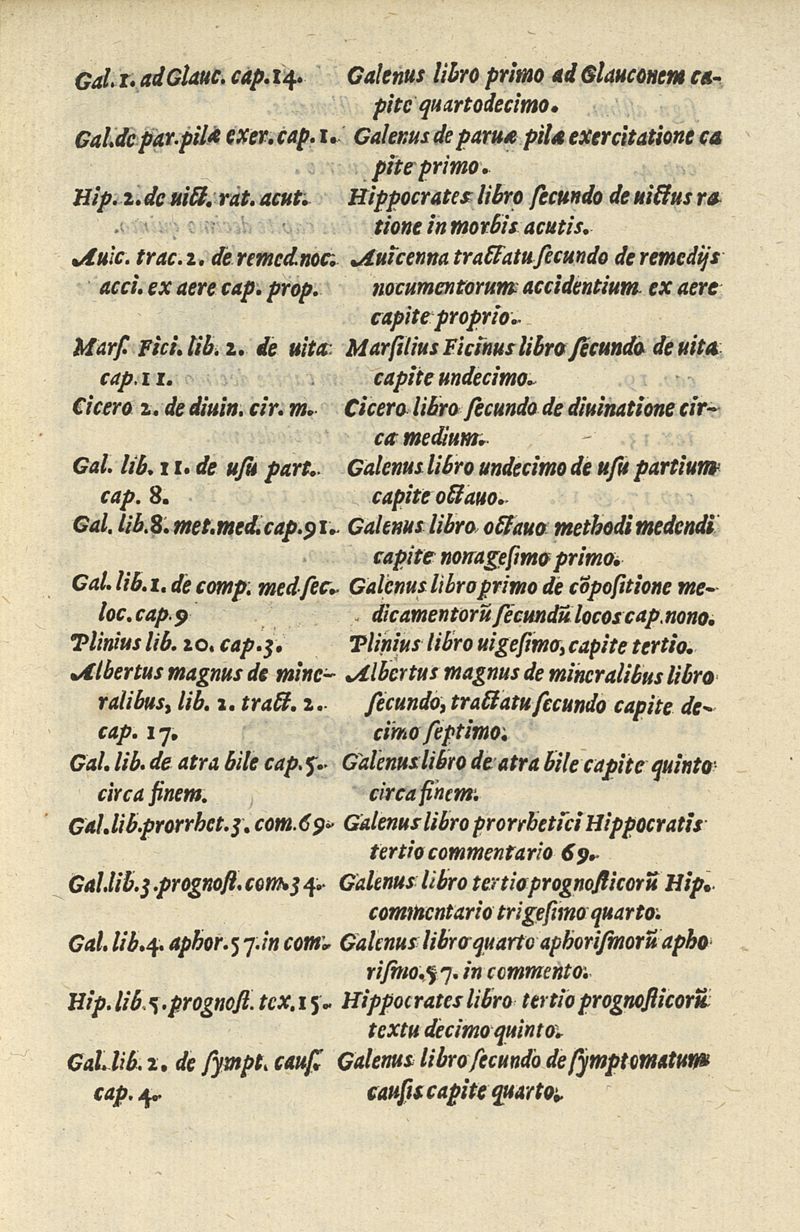 Gal. 1. ad Glauc. cap. 14. Galenus libro primo ad Glauconem ca-
pite quartodecimo.
Gal. de par. pila exer. cap. 1. Galenus de parua pila exercitatione ca
pite primo.
Hip. 2. de uict. rat. acut. Hippocrates libro ſecundo de uictus ra
tione in morbis acutis.
Auic. trac. 2. de remed. noc. Auicenna tractatu ſecundo de remedijs
acci. ex aere cap. prop. nocumentorum accidentium ex aere
capite proprio.
Marſ. Fici. lib. 2. de uita Marſilius Ficinus libro ſecundo de uita
cap. 11. capite undecimo.
Cicero 2. de diuin. cir. m. Cicero libro ſecundo de diuinatione cir-
ca medium.
Gal. lib. 11. de uſu part. Galenus libro undecimo de uſu partium
cap. 8. capite octauo.
Gal. lib. 8. met. med. cap. 91. Galenus libro octauo methodi medendi
capite nonageſimo primo.
Gal. lib. 1. de comp. med. ſec. Galenus libro primo de cõpoſitione me-
loc. cap. 9 dicamentorũ ſecundũ locos cap. nono.
Plinius lib. 20. cap. 3. Plinius libro uigeſimo, capite tertio.
Albertus magnus de mine- Albertus magnus de mineralibus libro
ralibus, lib. 2. tract. 2. ſecundo, tractatu ſecundo capite de-
cap. 17. cimo ſeptimo.
Gal. lib. de atra bile cap. 5. Galenus libro de atra bile capite quinto
circa finem. circa finem.
Gal. lib. prorrhet. 3. com. 69. Galenus libro prorrhetici Hippocratis
tertio commentario 69.
Gal. lib. 3. prognoſt. com. 34. Galenus libro tertio prognoſticorũ Hip.
commentario trigeſimo quarto.
Gal. lib. 4. aphor. 57. in com. Galenus libro quarto aphoriſmorũ apho
riſmo. 57. in commento.
Hip. lib. 5. prognoſt. tex. 15. Hippocrates libro tertio prognoſticorũ
textu decimo quinto.
Gal. lib. 2. de ſympt. cauſ. Galenus libro ſecundo de ſymptomatum
cap. 4. cauſis capite quarto.